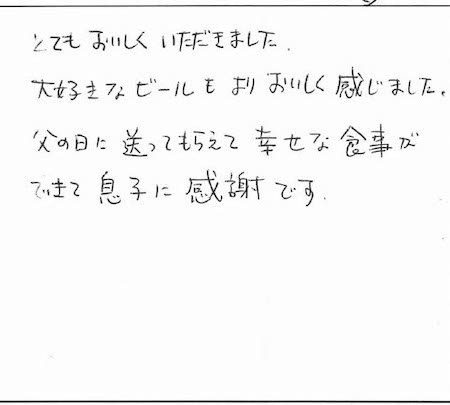 とてもおいしくいただきました.
大好きなビールもよりおいしく感じました。
父の日に送ってもらえて幸せな食事が
できて息子に感謝です.